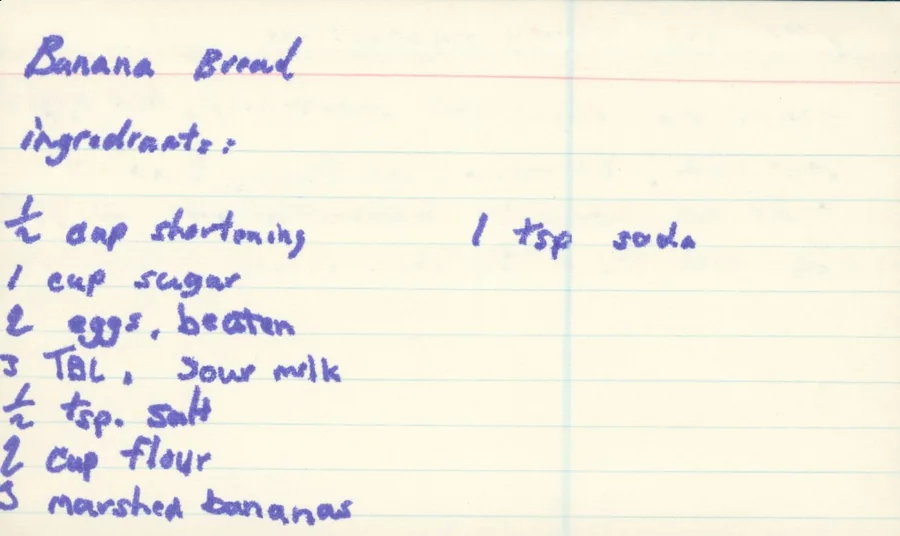 Banana Bread
ingredients:
1/2 cup shortening
1 tsp soda
1 cup sugar
2 eggs, beaten
3 TBL. sour milk
1/2 tsp. salt
2 cup flour
3 marshed bananas